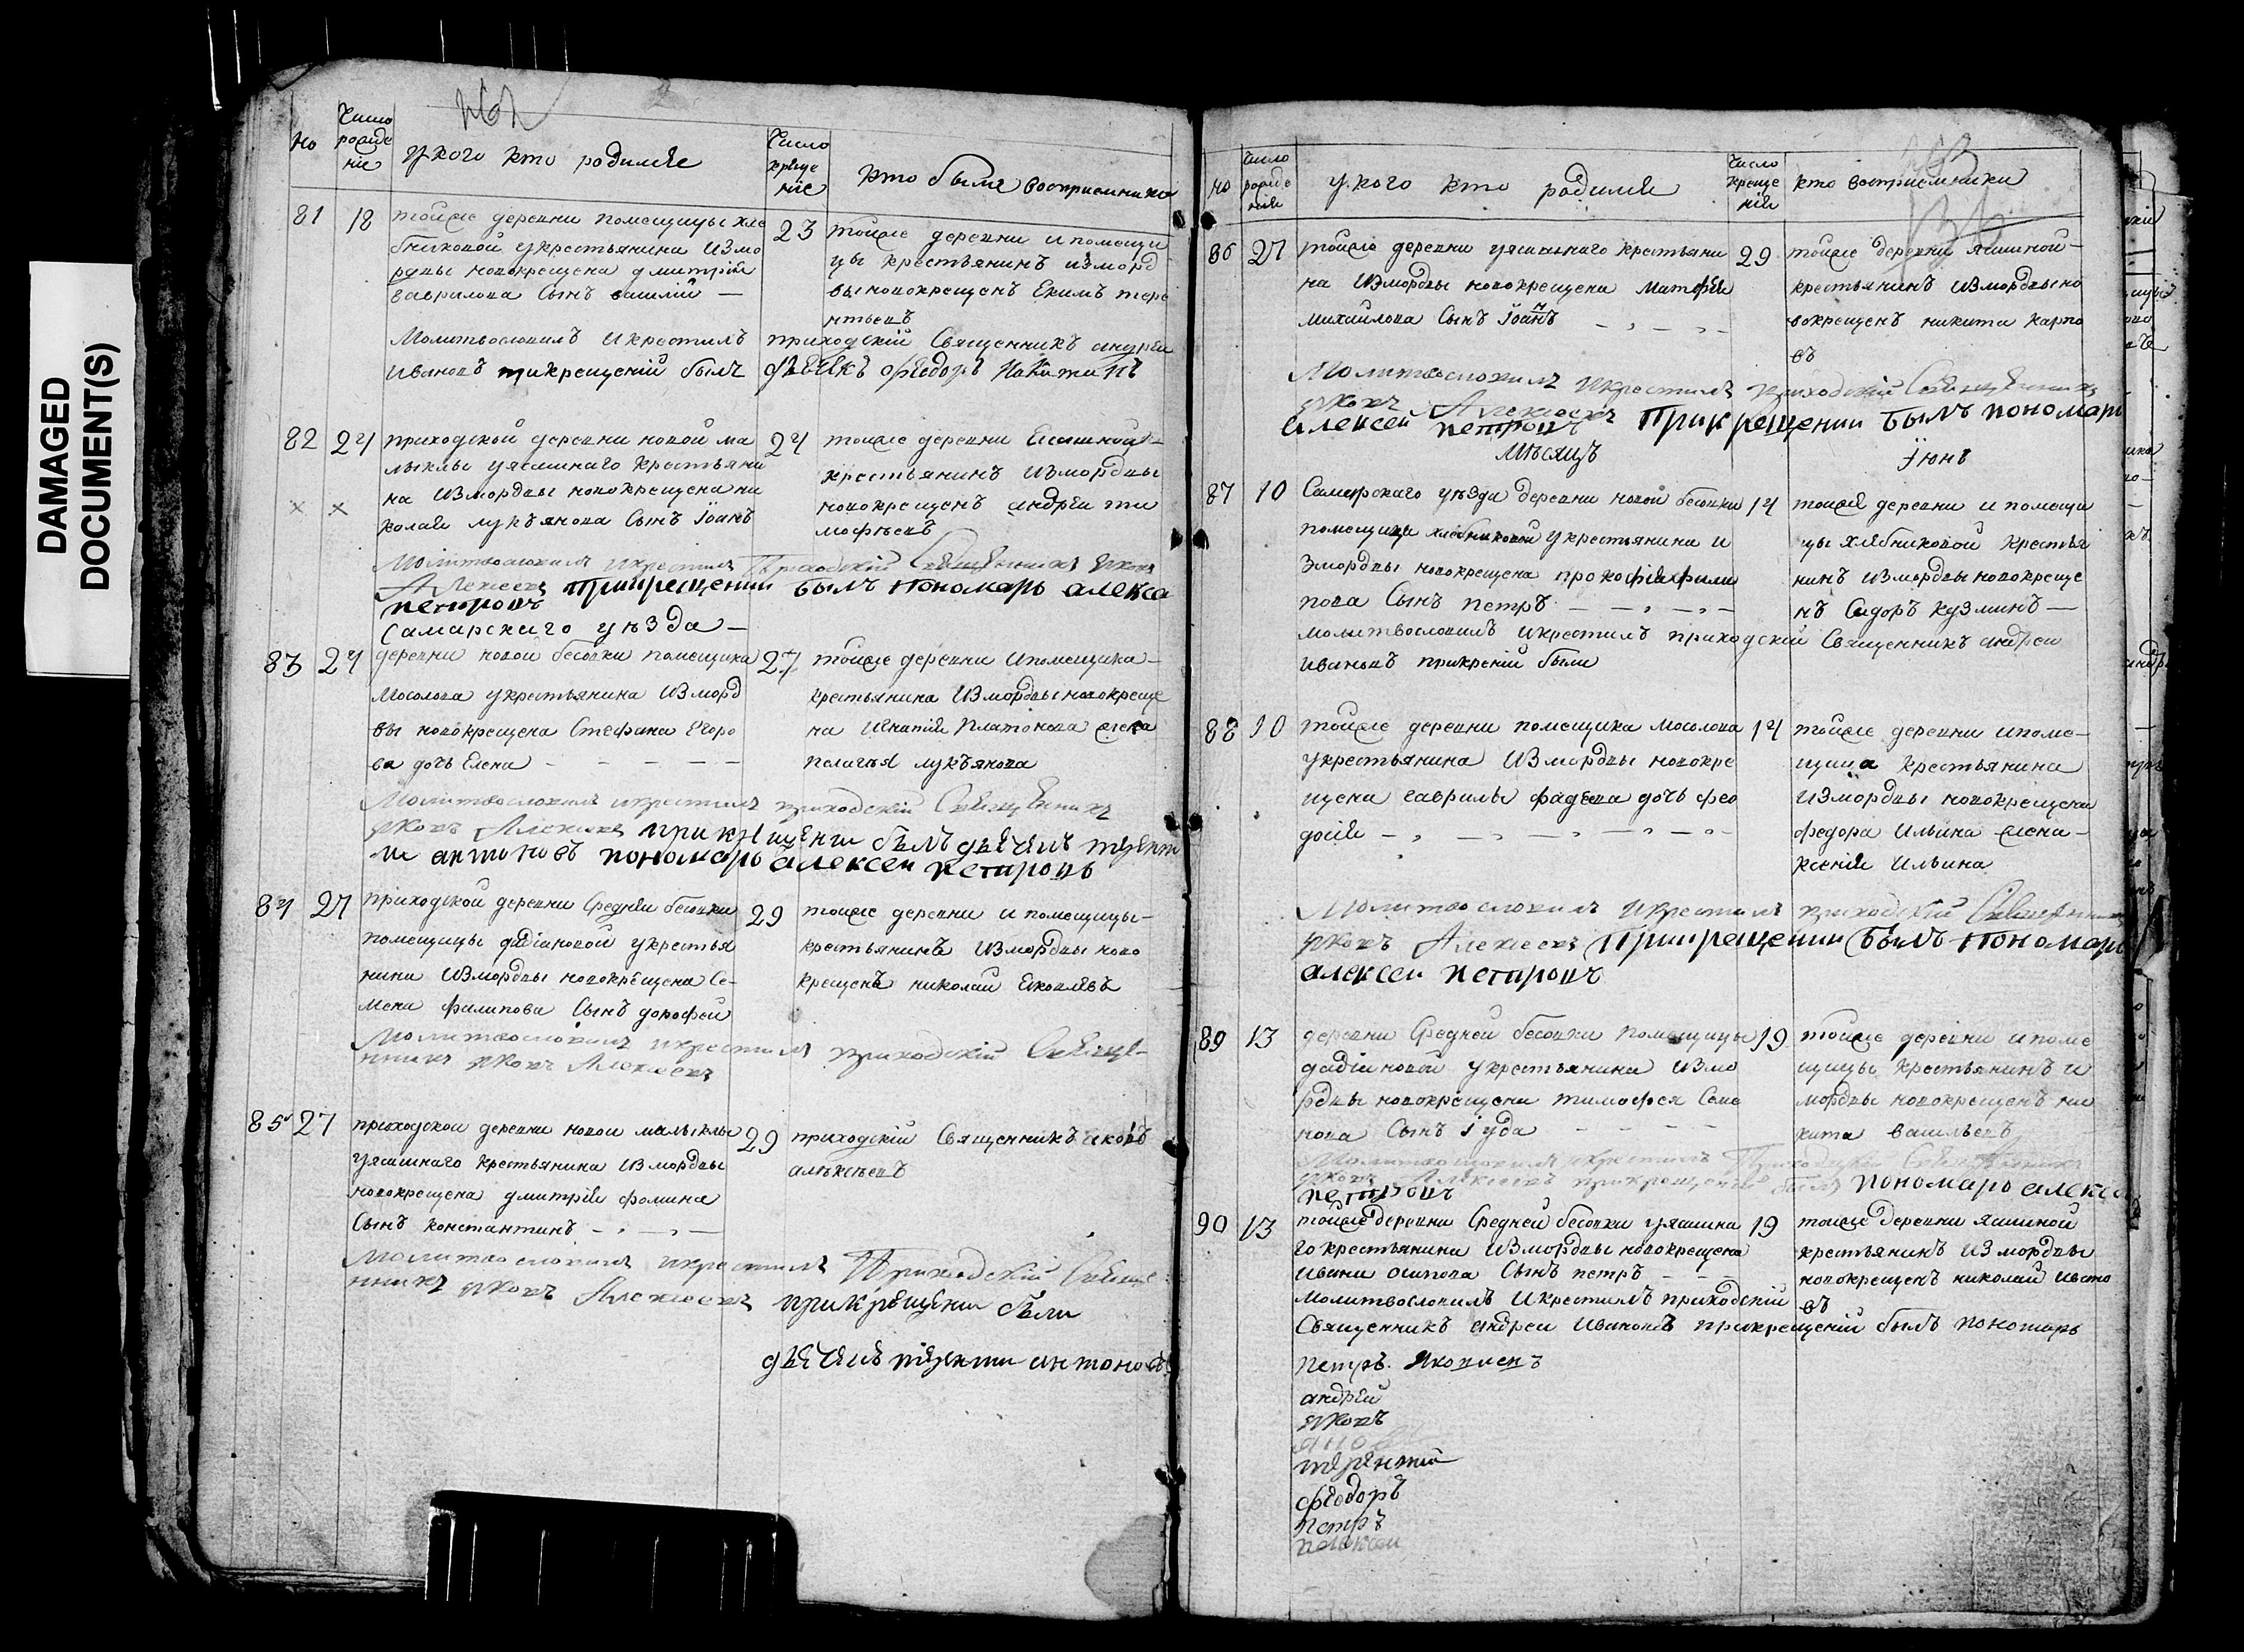 DAMAGED
DOCUMENT(S)
No
Число
рожде
нiе
у кого кто родился
Число
креще
нiе
кто были восприемники
81
18
тойже деревни помещицы хле
бниковой у крестьянина изъ мо
рдвы новокрещена дмитрiя
гаврилова Сынъ василiй —
23
тойже деревни и помещи
цы крестьянинъ изъ морд
вы новокрещенъ Екимъ тере
нтьевъ
Молитвословилъ и крестилъ приходскiй Священникъ андреи
Ивановъ при крещенiй былъ дьячекъ федоръ Никитинъ
82
24
приходской деревни новой ма
лыклы у ясашнаго крестьяни
на изъ мордвы новокрещена ни
колая лукъянова Сынъ Iоанъ
24
тойже деревни Ясашной
крестьянинъ изъ мордвы
новокрещенъ андреи ти
мофѣевъ
× ×
Молитвословилъ и крестилъ Приходскiй Священникъ Яковъ
Алексеевъ При крещении былъ пономарь алексе
петровъ
Самарскаго уѣзда —
83
24
деревни новой бесовки помещика
Мосолова у крестьянина изъ морд
вы новокрещена Стефана Егоро
ва дочь Елена — — — —
27
тойже деревни и помещика
крестьянина изъ мордвы новокреще
на Игнатiя Платонова жена
пелагея лукъянова
Молитвословилъ и крестилъ приходскiй Священникъ
Яковъ Алексеевъ при крещенiи былъ дьячекъ терент
iи антоновъ пономарь алексеи петровъ
84
27
приходской деревни Средней бесовки
помещицы дадiановой у крестья
нина изъ мордвы новокрещена Се-
мена филипова Сынъ дорофей
29
тойже деревни и помещицы
крестьянинъ изъ мордвы ново
крещенъ николаи Яковлевъ
Молитвословилъ и крестилъ приходскiй Священ-
никъ Яковъ Алексеевъ
85
27
приходской деревни новой малыклы
у ясашнаго крестьянина изъ мордвы
новокрещена дмитрiя фомина
Сынъ константинъ — —
29
приходскiй Священникъ Яковъ
алѣксѣевъ
Молитвословилъ и крестилъ Приходскiй Священ
никъ Яковъ Алексеевъ при крещенiи были
дьячекъ терентии антоновъ
No
Число
рожде
нiя
у кого кто родился
Число
креще
нiя
кто восприемники
86
27
тойже деревни у ясашнаго крестьяни
на изъ мордвы новокрещена Матфея
михайлова Сынъ Iоаннъ — — —
29
тойже деревни ясашной
крестьянинъ изъ мордвы но
вокрещенъ никита карпо
въ
Молитвословилъ и крестилъ приходскiй Священникъ
Яковъ Алексеевъ При крещении былъ пономарь
алексеи петровъ
Мѣсяцъ Iюнь
87
10
Самарскаго уѣзда деревни новой бесовки
помещицы хлебниковой у крестьянина и
зъ мордвы новокрещена прокофiя фили
пова Сынъ петръ — — —
14
тойже деревни и помещи
цы хлѣбниковой крестья
нинъ изъ мордвы новокреще
нъ Сидоръ кузминъ —
молитвословилъ и крестилъ приходскiй Священникъ андреи
ивановъ при кренiй были
88
10
тойже деревни помещика мосолова
у крестьянина изъ мордвы новокре
щена гаврилы фадеева дочь фео
досiя — — — — —
14
тойже деревни и поме-
щика крестьянина
изъ мордвы новокрещена
федора Ильина жена
ксенiя Ильина
Молитвословилъ и крестилъ приходскiй Священникъ
Яковъ Алексеевъ При крещении былъ пономарь
алексеи петровъ
89
13
деревни Средней бесовки помещицы
дадiановой у крестьянина изъ мо
рдвы новокрещена тимофея Семе
нова Сынъ Iуда — — — —
19
тойже деревни и поме
щицы крестьянинъ и
мордвы новокрещенъ ни
кита васильевъ
Молитвословилъ и крестилъ Приходскiй Священникъ
Яковъ Алексеевъ при крещенiи былъ пономарь алексе
петровъ
90
13
тойже деревни Средней бесовки у ясашна
го крестьянина изъ мордвы новокрещена
ивана осипова Сынъ петръ — —
19
тойже деревни ясашной
крестьянинъ изъ мордвы
новокрещенъ николаи ивано
въ
молитвословилъ и крестилъ приходскiй
Священникъ андреи Ивановъ при крещенiй былъ пономарь
петръ Яковлевъ
андрей
Яковъ
терентий
федоръ
петръ
алексеи